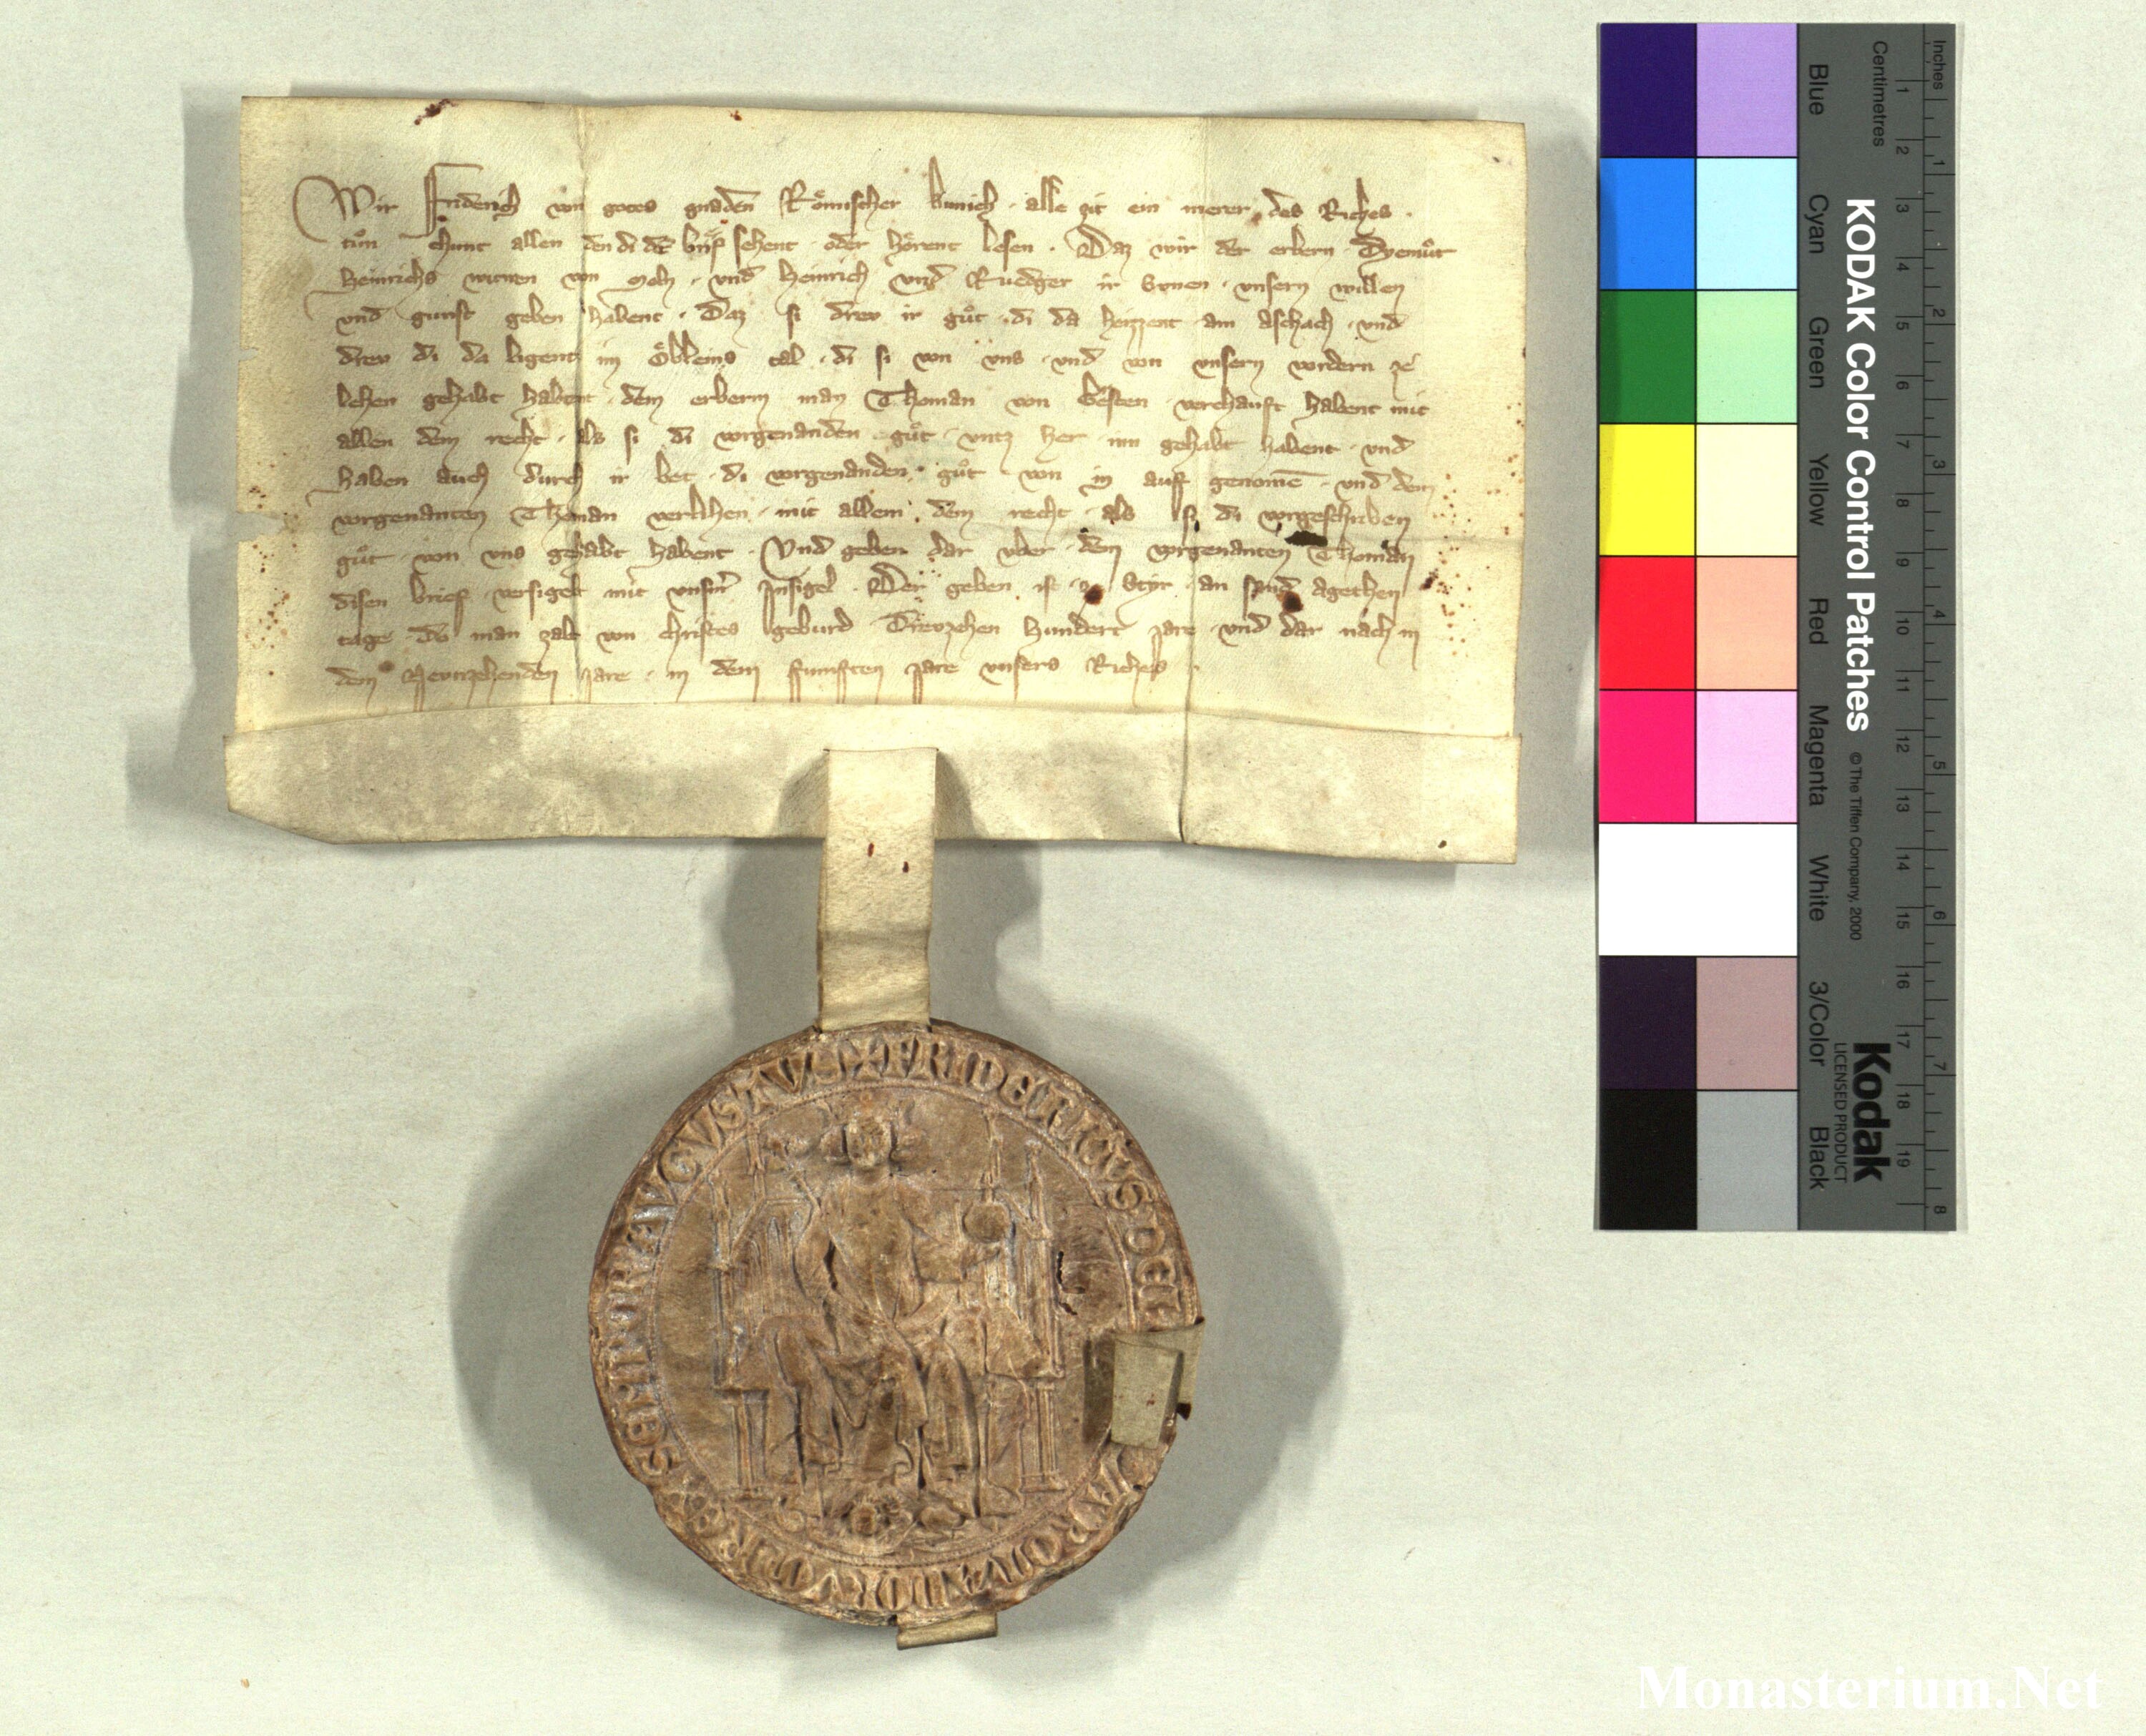 Wir Friderich von gotes gnaden Roͤmischer kunich · alle zit ein merer des Riches ·
tuͦn chunt allen den di disen brief sehent · oder hoͤrent lesen · Daz wir der erbern Dyemuͦt
Heinrichs witwen von · und Heinrich und Ruedger ir Svnen · unsern willen
und gunst geben habent · Daz si drev ir guͦt · di da heizzent am Aschach · und
drev di da ligent im tal · di si von uns · und von unsern vordern ze
lehen gehabt habent · dem erbern man Thoman von verchauft habent mit
allen dem recht · als si di vorgenanden guͦt · untz her · inn gehabt habent · und
haben auch durch ir bet · di vorgenanden · guͦt von in auf genomē · und dem
vorgenanten Thoman verlihen · mit allem dem recht · als si di vorgeschriben
guͦt · von uns gehabt habent · Und geben dar uber · dem vorgenanten Thoman
disen brief · versigelt mit unserm Insigel · Der geben ist · ze Styr · an sand Agethen
tage · do man zalt von christes geburd Drevzehen hundert jare · und dar nach in
dem Nevnzehenden jare · in dem funften jare unsers Riches ·
FRIDERICVS DEI
ROMANORVM REX SEMPER AVGVSTVS
KODAK Color Control Patches
© The Tiffen Company, 2000
Kodak
LICENSED PRODUCT
Inches
1 2 3 4 5 6 7 8
Centimetres
1 2 3 4 5 6 7 8 9 10 11 12 13 14 15 16 17 18 19
Blue
Cyan
Green
Yellow
Red
Magenta
White
3/Color
Black
Monasterium.Net